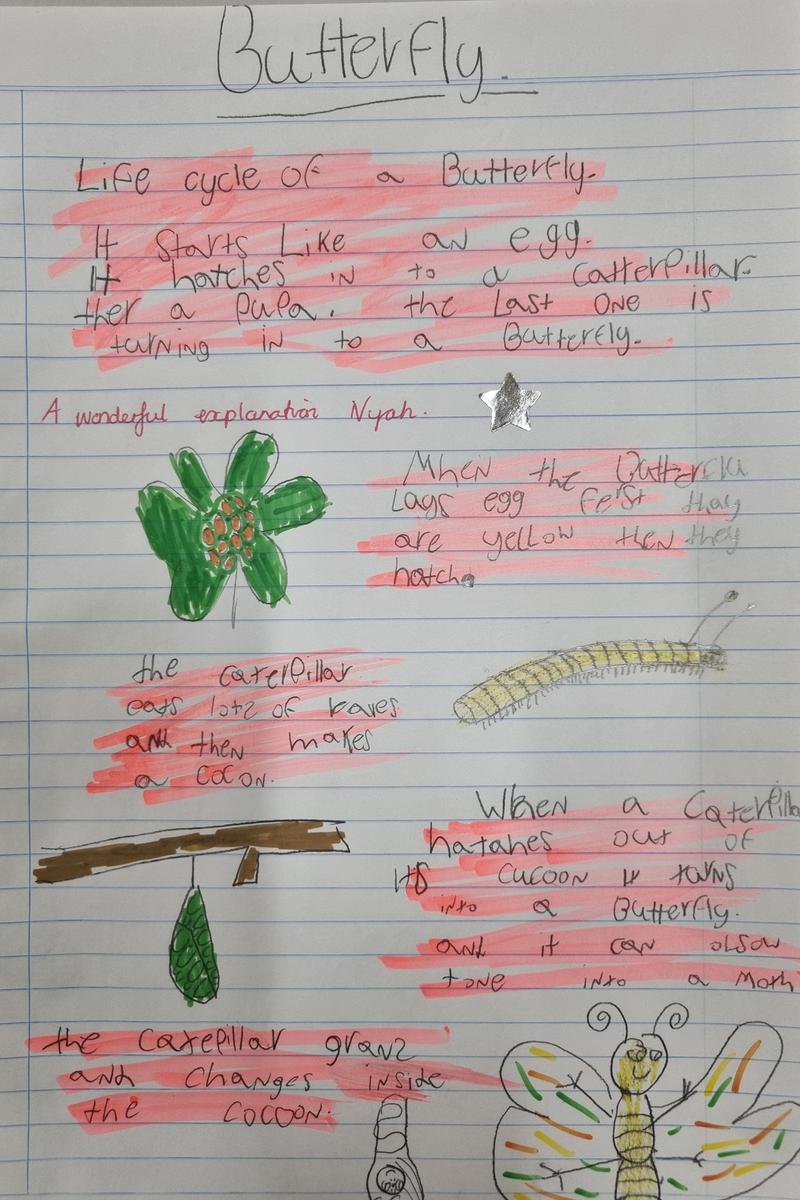 Butterfly.
Life cycle of a Butterfly.
It starts Like an egg.
It hatches in to a catterPillar.
ther a pupa. the Last one is
turning in to a Butterfly.
A wonderful explanation Nyah.
When the Butterfly
Lays egg feist thay
are yellow then they
hatch.
the caterPillar
eats lots of leaves
and then makes
a cocon.
When a CaterPilla
hatahes out of
its cucoon it turns
into a Butterfly.
and it can olsow
tone into a Moth
the catePillar grans
and changes inside
the cocoon.